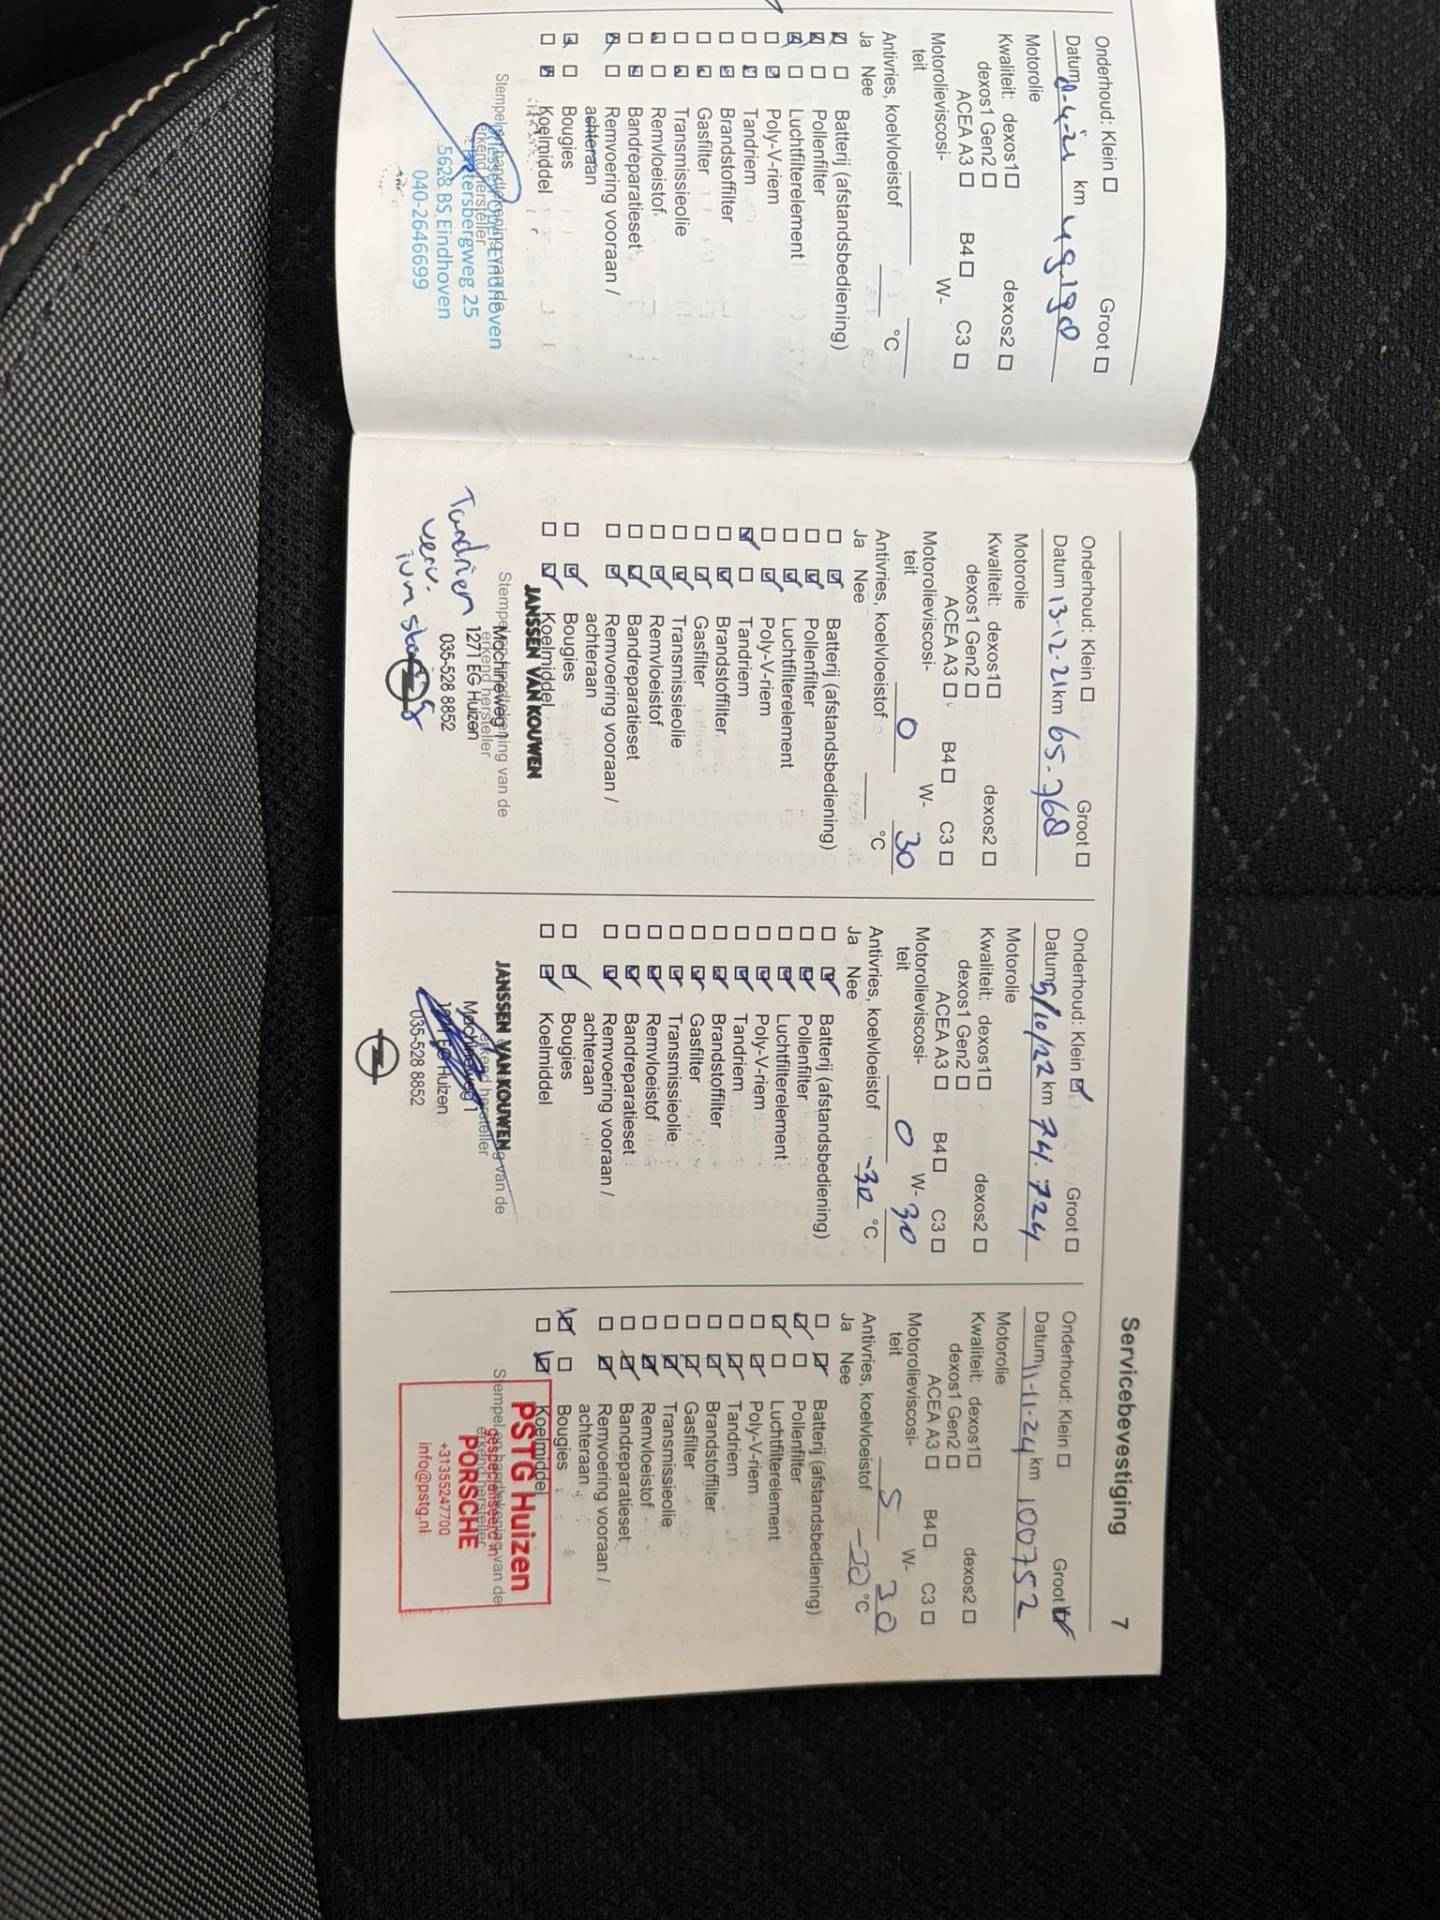 Onderhoud: Klein ☐ Groot ☐
km 48.198
Motorolie
Kwaliteit: dexos1☐ dexos2 ☐
dexos1 Gen2 ☐
ACEA A3 ☐ B4 ☐ C3 ☐
Motorolieviscosi- W-
teit
Antivries, koelvloeistof °C
Ja Nee
☑ ☐ Batterij (afstandsbediening)
☑ ☐ Pollenfilter
☑ ☐ Luchtfilterelement
☐ ☑ Poly-V-riem
☐ ☑ Tandriem
☐ ☑ Brandstoffilter
☐ ☑ Gasfilter
☐ ☑ Transmissieolie
☑ ☐ Remvloeistof
☐ ☑ Bandreparatieset
☑ ☐ Remvoering vooraan /
achteraan
☑ ☐ Bougies
☐ ☑ Koelmiddel
5628 BS Eindhoven
040-2646699
Servicebevestiging 7
Onderhoud: Klein ☐ Groot ☐
Datum 13-12-21 km 65.768
Motorolie
Kwaliteit: dexos1☐ dexos2 ☐
dexos1 Gen2 ☐
ACEA A3 ☐ B4 ☐ C3 ☐
Motorolieviscosi- 0 W- 30
teit
Antivries, koelvloeistof °C
Ja Nee
☐ ☑ Batterij (afstandsbediening)
☐ ☑ Pollenfilter
☐ ☑ Luchtfilterelement
☐ ☑ Poly-V-riem
☑ ☐ Tandriem
☐ ☑ Brandstoffilter
☐ ☑ Gasfilter
☐ ☑ Transmissieolie
☐ ☑ Remvloeistof
☐ ☑ Bandreparatieset
☐ ☑ Remvoering vooraan /
achteraan
☐ ☑ Bougies
☐ ☑ Koelmiddel
JANSSEN VAN KOUWEN
Stempel en handtekening van de
erkend hersteller
Machineweg 1
1271 EG Huizen
035-528 8852
Tandriem
verv.
Onderhoud: Klein ☑ Groot ☐
Datum 5/10/22 km 74.724
Motorolie
Kwaliteit: dexos1☐ dexos2 ☐
dexos1 Gen2 ☐
ACEA A3 ☐ B4 ☐ C3 ☐
Motorolieviscosi- 0 W- 30
teit
Antivries, koelvloeistof -30 °C
Ja Nee
☐ ☑ Batterij (afstandsbediening)
☐ ☑ Pollenfilter
☐ ☑ Luchtfilterelement
☐ ☑ Poly-V-riem
☐ ☑ Tandriem
☐ ☑ Brandstoffilter
☐ ☑ Gasfilter
☐ ☑ Transmissieolie
☐ ☑ Remvloeistof
☐ ☑ Bandreparatieset
☐ ☑ Remvoering vooraan /
achteraan
☐ ☑ Bougies
☐ ☑ Koelmiddel
JANSSEN VAN KOUWEN
Machineweg 1
1271 EG Huizen
035-528 8852
Onderhoud: Klein ☐ Groot ☑
Datum 11-11-24 km 100752
Motorolie
Kwaliteit: dexos1☐ dexos2 ☐
dexos1 Gen2 ☐
ACEA A3 ☐ B4 ☐ C3 ☐
Motorolieviscosi- 5 W- 30
teit
Antivries, koelvloeistof °C
Ja Nee
☐ ☑ Batterij (afstandsbediening)
☑ ☐ Pollenfilter
☑ ☐ Luchtfilterelement
☐ ☑ Poly-V-riem
☐ ☑ Tandriem
☐ ☑ Brandstoffilter
☐ ☑ Gasfilter
☐ ☑ Transmissieolie
☐ ☑ Remvloeistof
☐ ☑ Bandreparatieset
☐ ☑ Remvoering vooraan /
achteraan
☑ ☐ Bougies
☐ ☑ Koelmiddel
PSTG Huizen
gespecialiseerd in
PORSCHE
+31355247700
info@pstg.nl